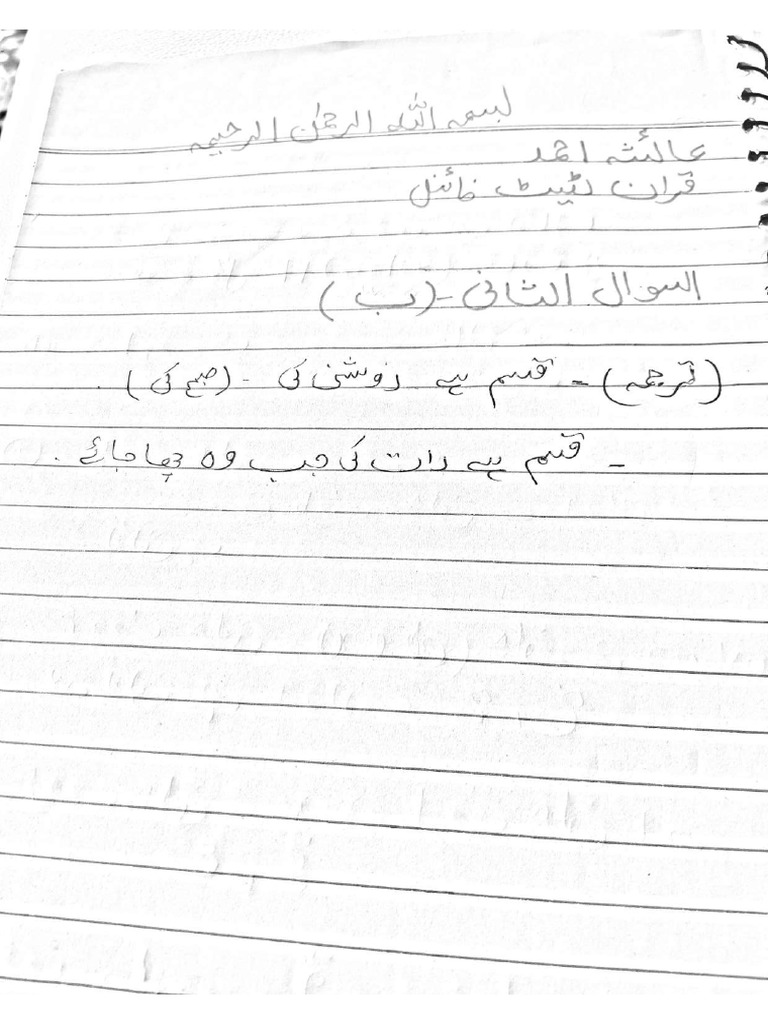 بسمہ اللہ الرحمٰن الرحیمہ
عائشہ احمد
قران ٹیسٹ فائنل
السوال الثانی - (ب)
(ترجمہ) - قسم ہے روشنی کی - (صبح کی) .
- قسم ہے رات کی جب وہ چھا جائے